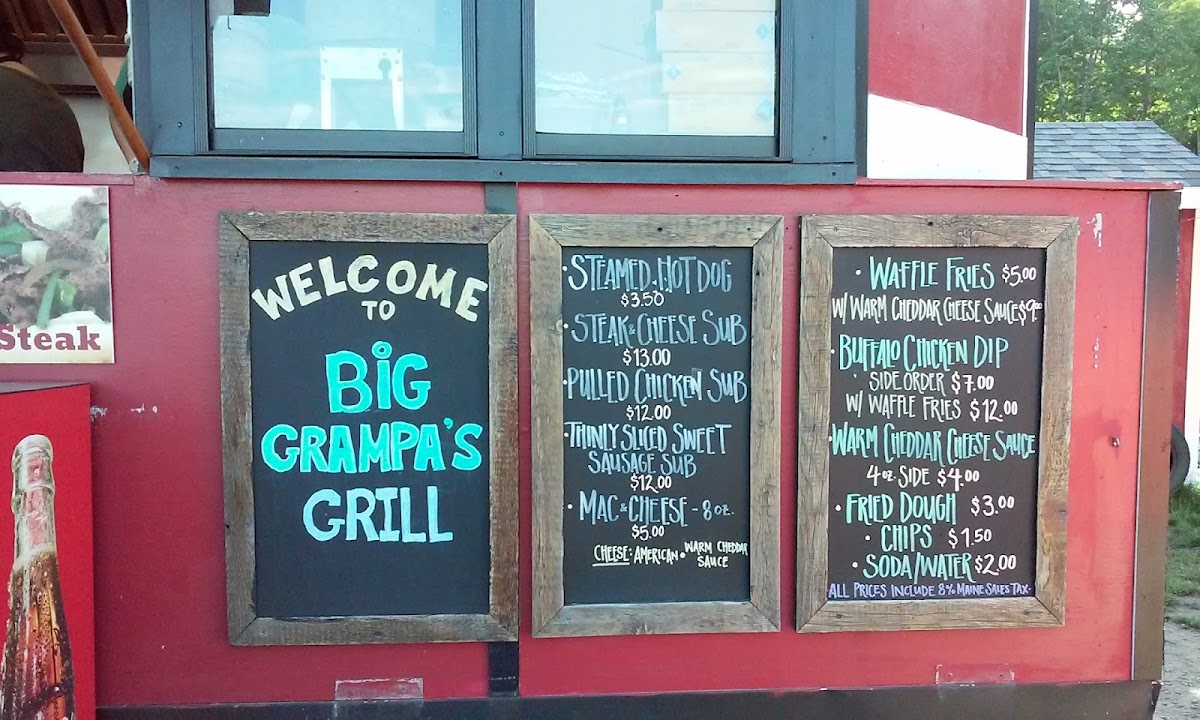 Steak
WELCOME
TO
BIG
GRAMPA'S
GRILL
• STEAMED HOT DOG
$3.50
• STEAK & CHEESE SUB
$13.00
• PULLED CHICKEN SUB
$12.00
• THINLY SLICED SWEET
SAUSAGE SUB
$12.00
• MAC & CHEESE - 8 oz.
$5.00
CHEESE: AMERICAN • WARM CHEDDAR
SAUCE
• WAFFLE FRIES $5.00
W/ WARM CHEDDAR CHEESE SAUCE $9.00
• BUFFALO CHICKEN DIP
SIDE ORDER $7.00
W/ WAFFLE FRIES $12.00
• WARM CHEDDAR CHEESE SAUCE
4 oz. SIDE $4.00
• FRIED DOUGH $3.00
• CHIPS $1.50
• SODA/WATER $2.00
ALL PRICES INCLUDE 8% MAINE SALES TAX.